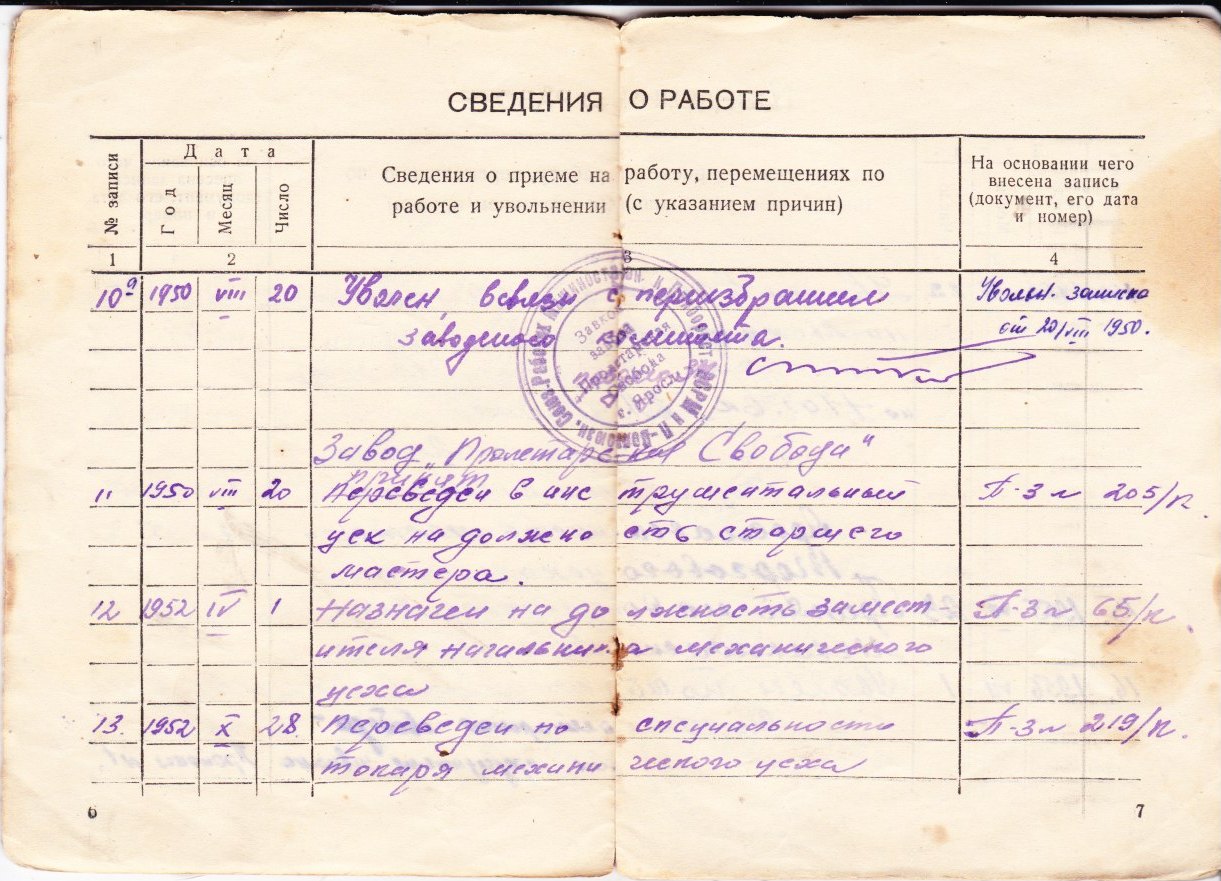 СВЕДЕНИЯ О РАБОТЕ
№ записи
Дата
Год
Месяц
Число
Сведения о приеме на работу, перемещениях по
работе и увольнении (с указанием причин)
На основании чего
внесена запись
(документ, его дата
и номер)
1 2 3 4
10а 1950 VIII 20 Уволен, всвязи с переизбранием Увольн. записка
заводского комитета. от 20/VIII 1950.
Завком
завода
Пролетарская
Свобода
Завод „Пролетарская Свобода"
принят
11 1950 VIII 20 Переведен в инструментальный П-з л 205/к.
цех на должность старшего
мастера.
12 1952 IV 1 Назначен на должность замест П-з л 65/к.
ителя начальника механического
цеха
13. 1952 X 28. Переведен по специальности П-з л 219/к.
токаря механического цеха
6 7